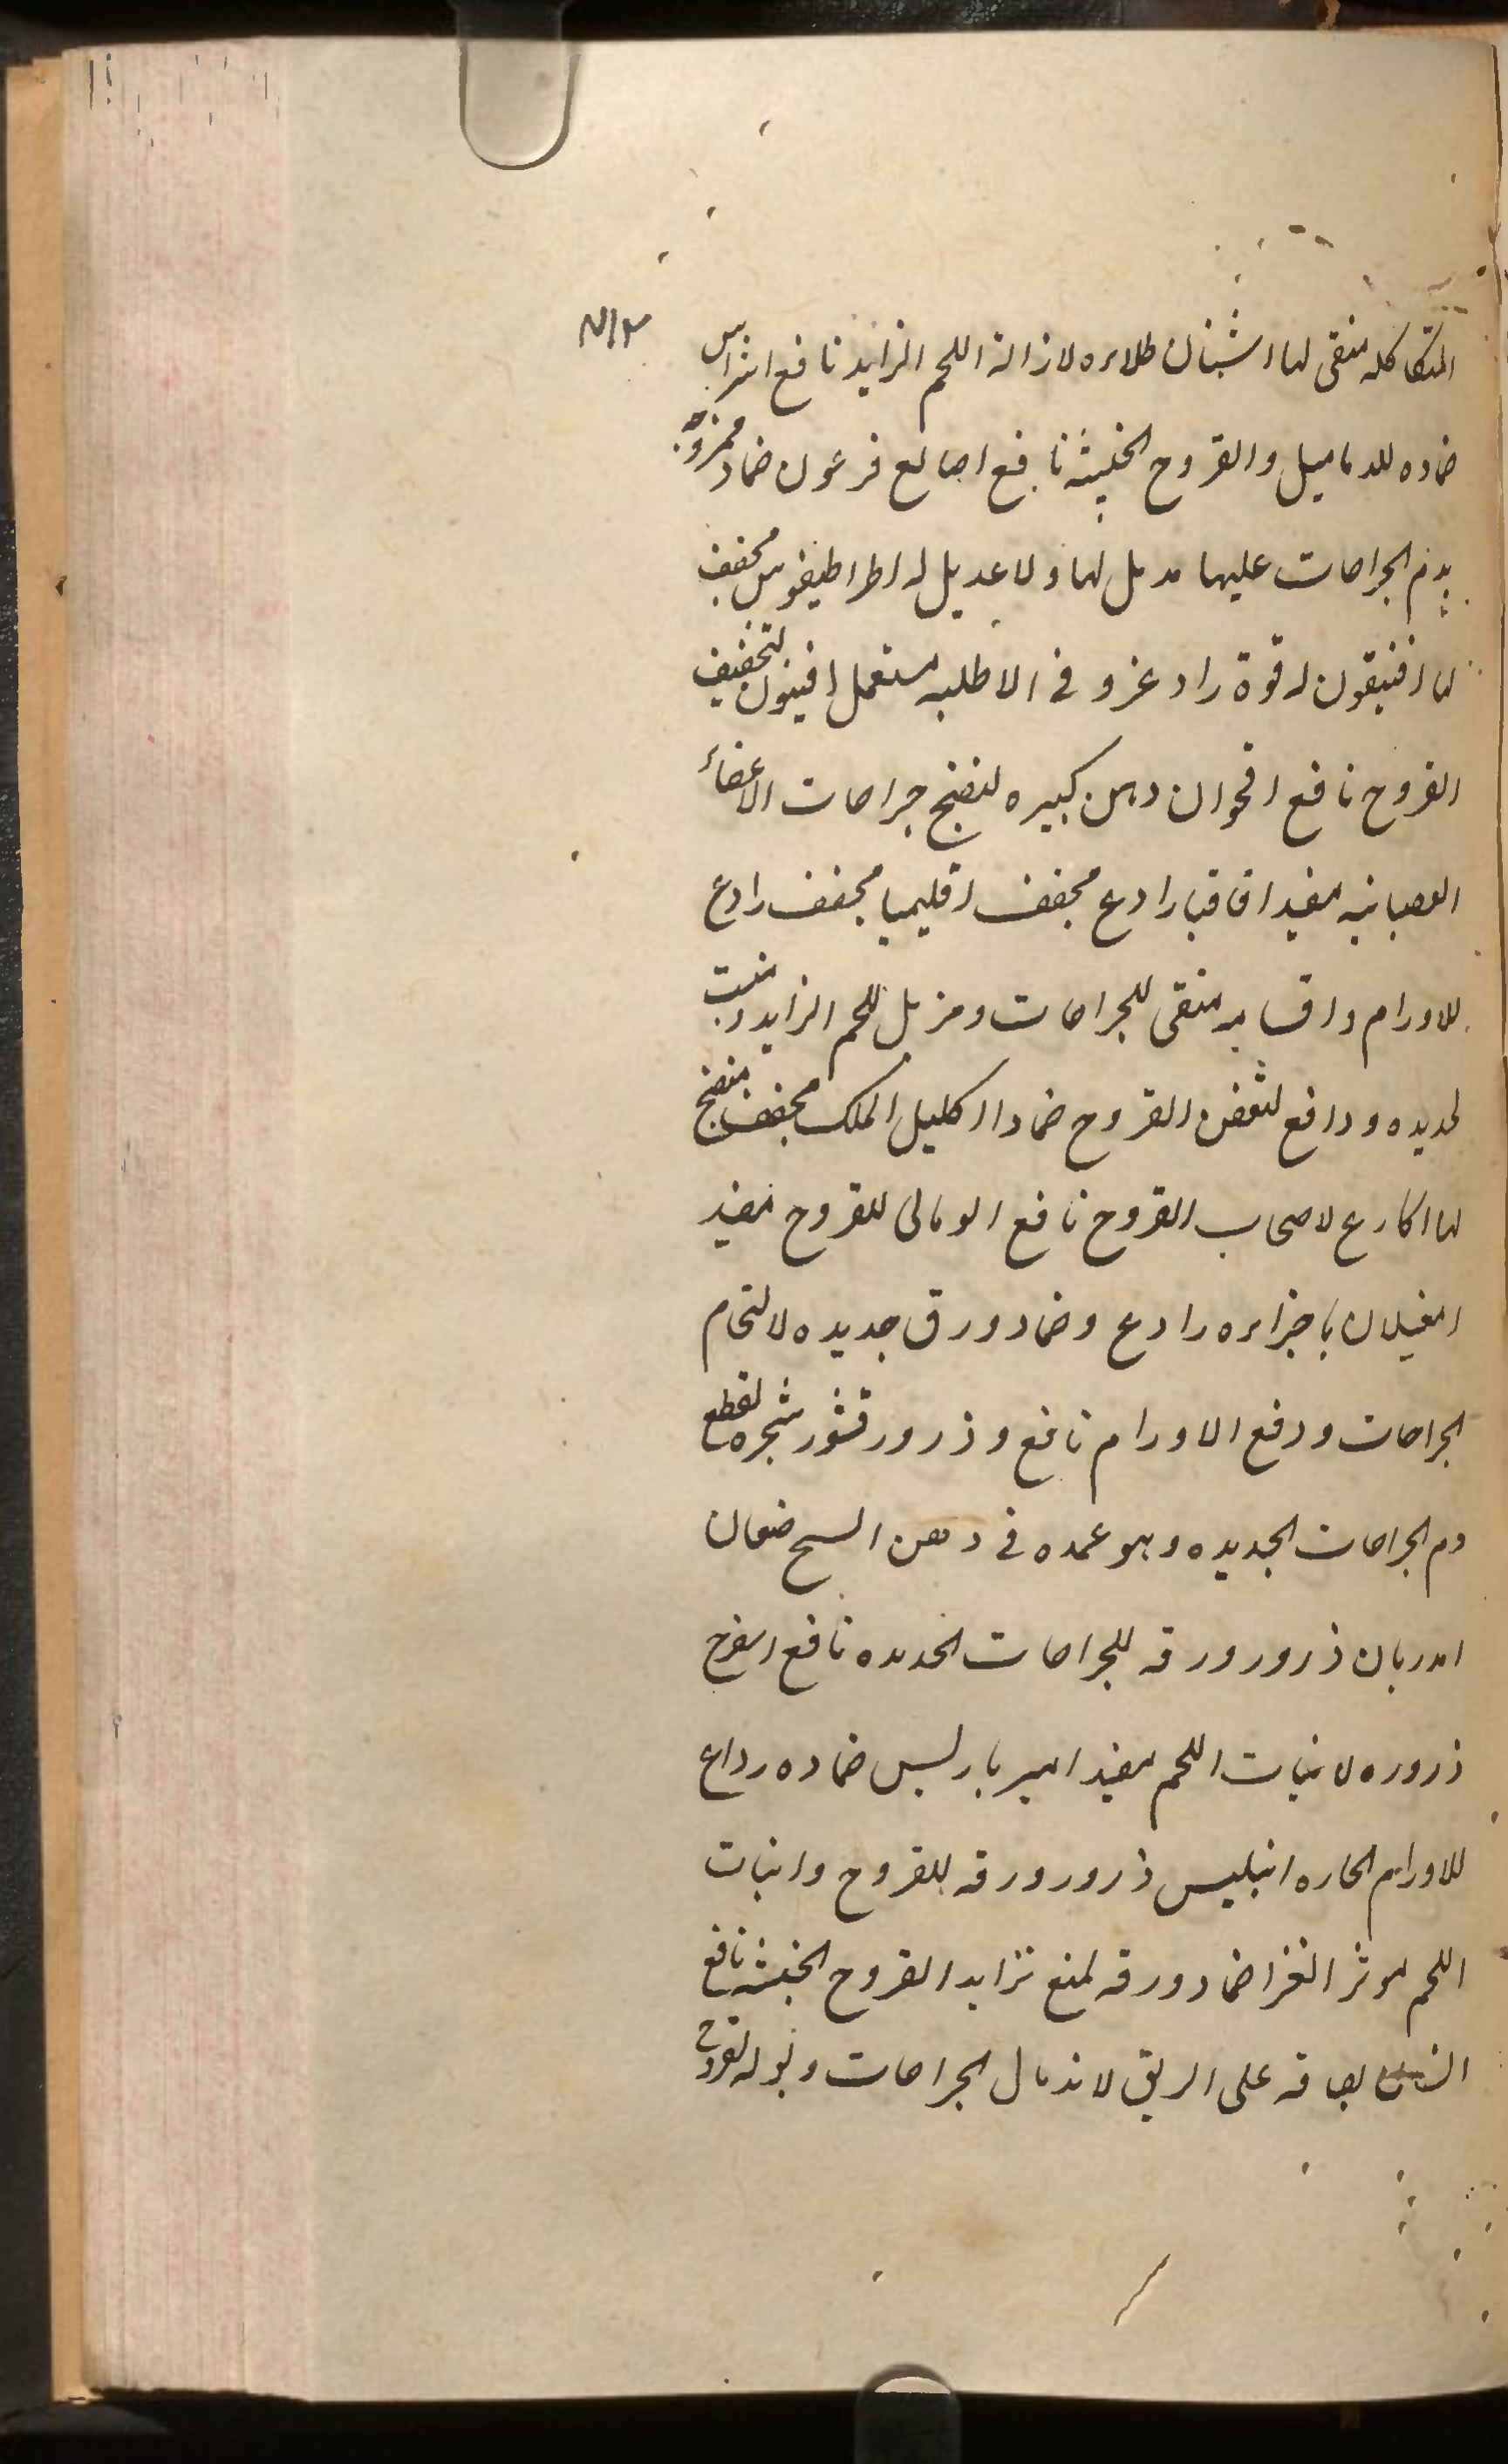 ٣١٧
المتاكله منقى لها اشنان طلاءه لازالة اللحم الزايد نافع اشراس
ضماده للدماميل والقروح الخبيثه نافع اصابع فرعون ضماد ممزوجه
بدم الجراحات عليها مدمل لها ولا عديل له اطراطيقوس مجفف
لها افنيقون له قوة رادعه و فى الاطليه مستعمل افيون لتجفيف
القروح نافع اقحوان دهن كبيره لنضج جراحات الاعضاء
العصبانيه مفيد اقاقيا رادع مجفف اقليميا مجفف رادع
للاورام واقسامه منقى للجراحات ومزيل للحم الزايد ومنبت
لجديده ودافع لتعفن القروح ضمادا اكليل الملك مجفف منضج
لها اكارع لاصحاب القروح نافع الومالى للقروح مفيد
امغيلان باجزاءه رادع وضماد ورق جديده لالتحام
الجراحات ودفع الاورام نافع وذرور قشور شجره لقطع
دم الجراحات الجديده وهو عمده فى دهن
ذرور ورقه للجراحات الجديده نافع
ذروره لانبات اللحم مفيد امير باريس ضماده رداع
للاورام الحاره انبليس ذرور ورقه للقروح وانبات
اللحم موثر انغرا ضماد ورقه لمنع تزايد القروح الخبيثه نافع
انسان بصاقه على الريق لاندمال الجراحات وبوله لقروح